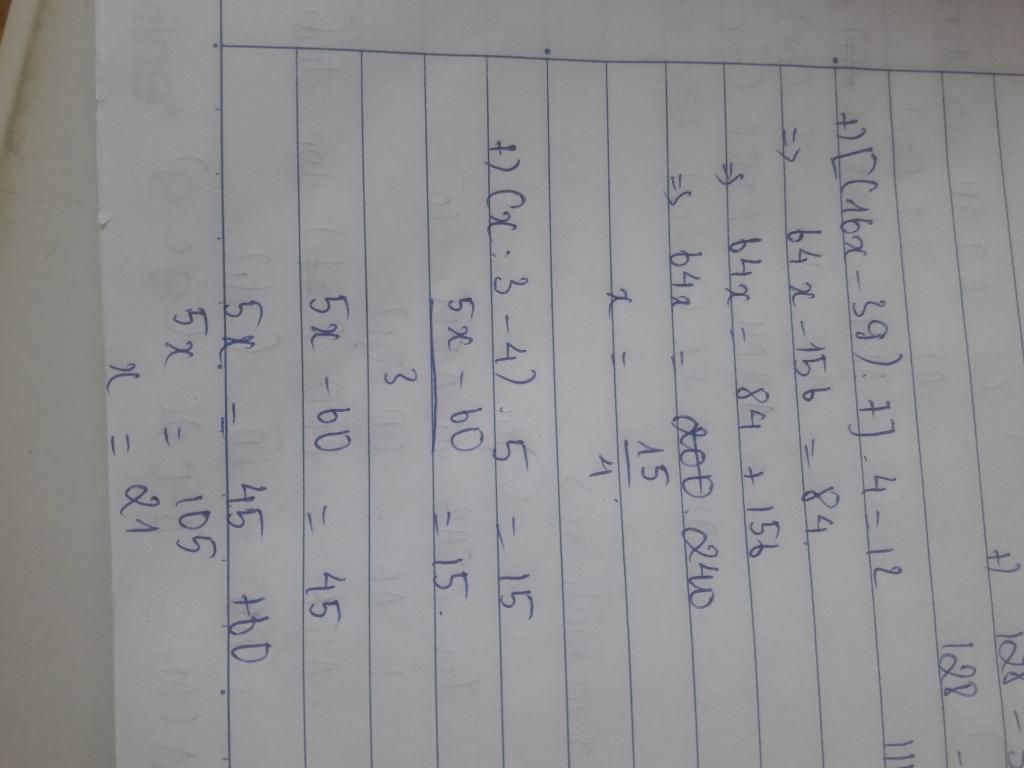 +) 128 -
128 -
+) [(16x - 39) : 7] . 4 = 12
=> 64x - 156 = 84
=> 64x = 84 + 156
=> 64x = 240
x = 15/4
+) (x : 3 - 4) . 5 = 15
5x - 60 = 15.
3
5x - 60 = 45
5x = 45 + 60
5x = 105
x = 21